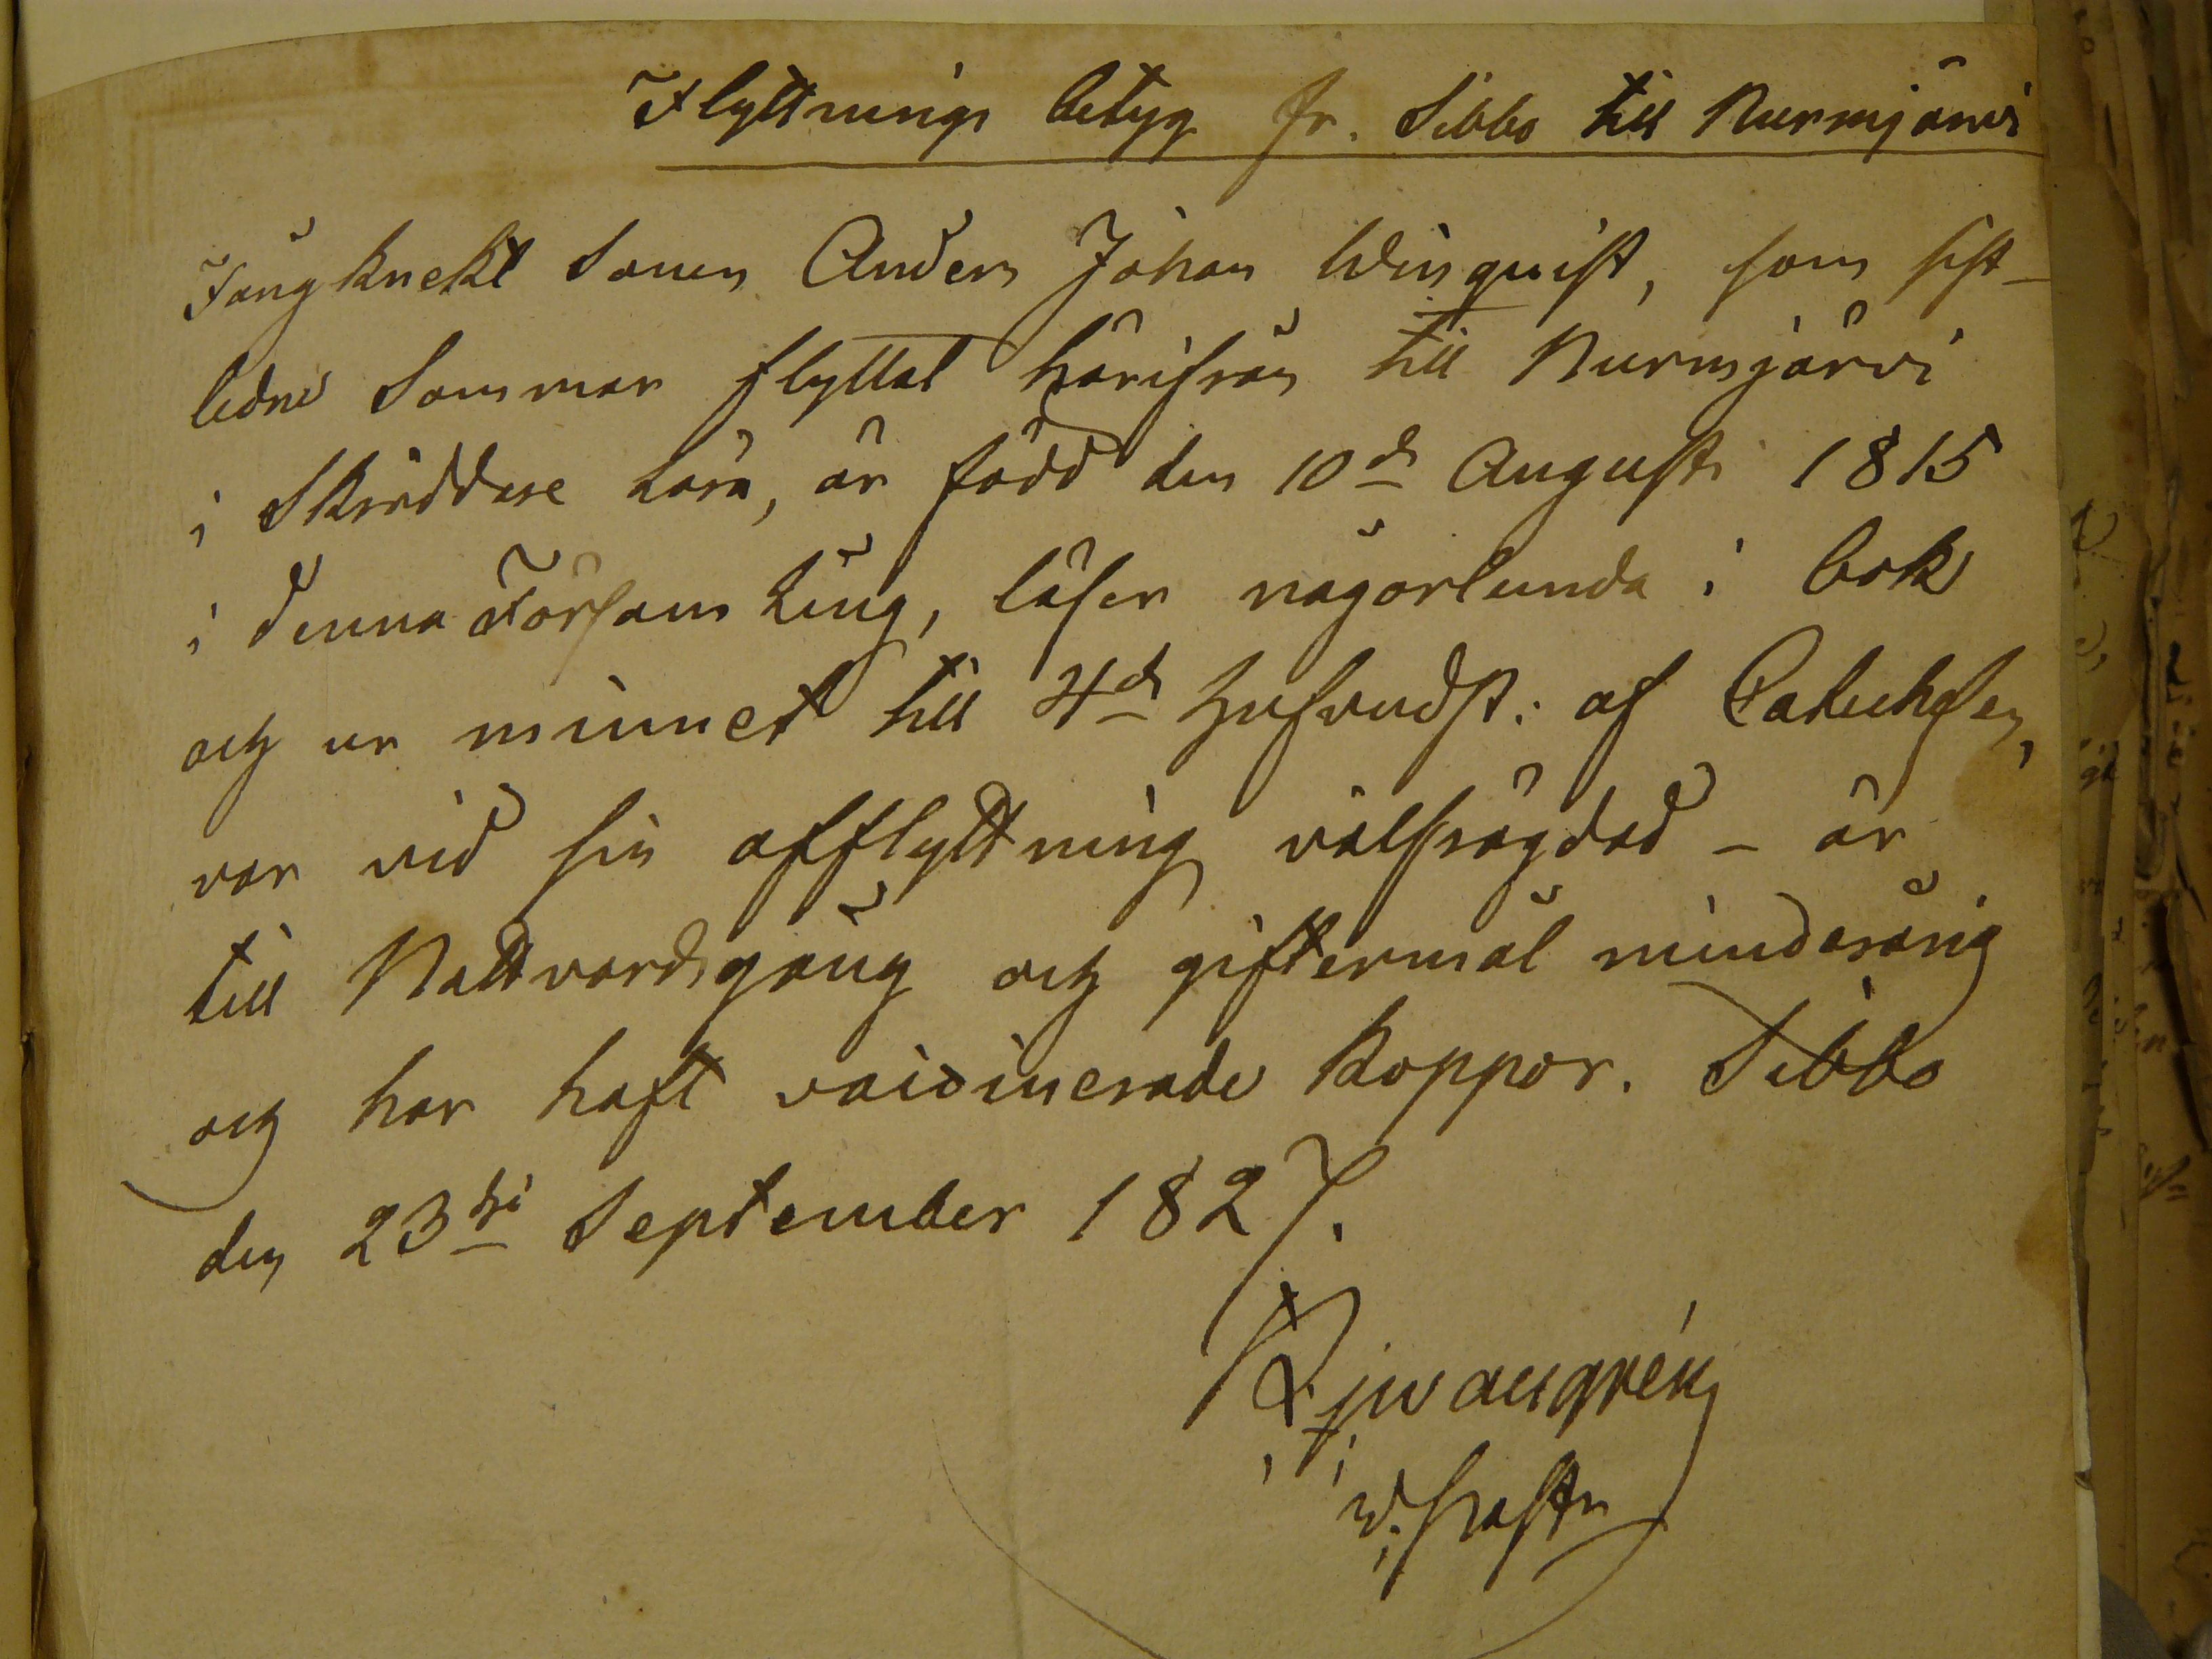 Flyttnings betyg fr. Sibbo till Nurmjärvi
Fångknekt Sonen Anders Johan Winquist, som sist-
ledne Sommar flyttat härifrån till Nurmjärvi
i Skräddare Lära, är född den 10de Augusti 1815
i denna Församling, läser någorlunda i bok
och ur minnet till 4de Hufvudst: af Catechesen,
var vid sin afflyttning välfrägdad – är
till Nattvardsgång och giftermål minderårig
och har haft vaccinerade Koppor. Sibbo
den 23dje September 1827.
v. Pastor